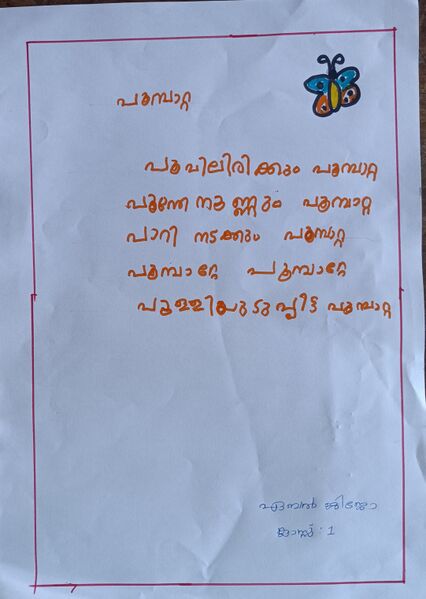 പൂമ്പാറ്റ
പൂവിലിരിക്കും പൂമ്പാറ്റ
പൂന്തേനുണ്ണും പൂമ്പാറ്റ
പാറി നടക്കും പൂമ്പാറ്റ
പൂമ്പാറ്റേ പൂമ്പാറ്റേ
പുള്ളിയുടുപ്പിട്ട പൂമ്പാറ്റ
ഏബൽ ജിജോ
ക്ലാസ്സ് : 1